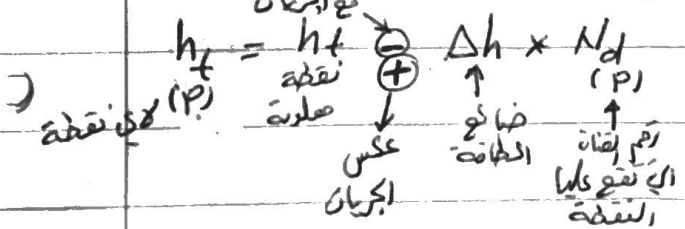 مع الجريان
h_t = h_t ⊖ Δh × N_d
⊕
(P) (P)
لأي نقطة
نقطة معلومة
عكس الجريان
ضائع الطاقة
رقم القناة التي تقع عليها النقطة